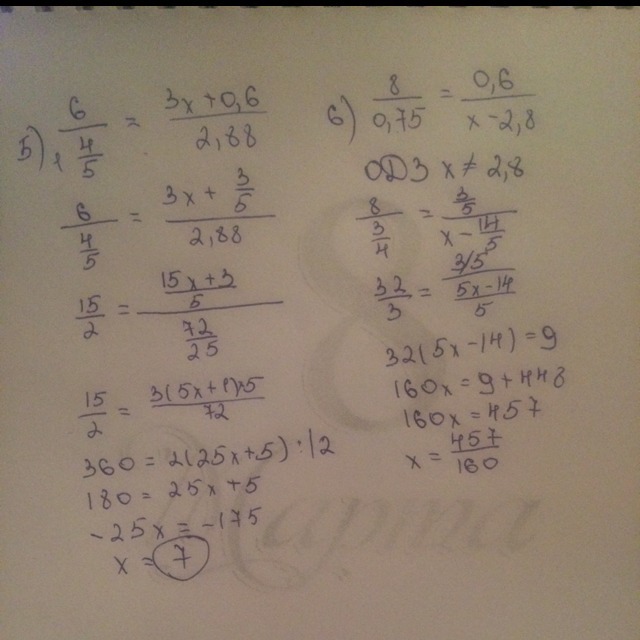 5) 6/(4/5) = (3x+0,6)/2,88
6/(4/5) = (3x + 3/5)/2,88
15/2 = ((15x+3)/5)/(72/25)
15/2 = 3(5x+1)·5/72
360 = 2(25x+5) :12
180 = 25x+5
-25x = -175
x = 7
6) 8/0,75 = 0,6/(x-2,8)
ОДЗ x ≠ 2,8
8/(3/4) = (3/5)/(x - 14/5)
32/3 = (3/5)/((5x-14)/5)
32(5x-14) = 9
160x = 9+448
160x = 457
x = 457/160
8
Марта